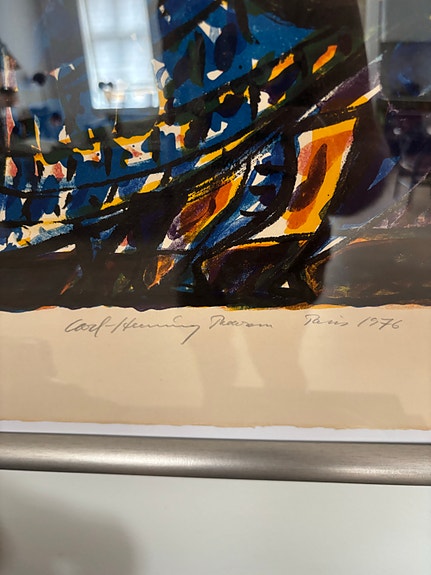 Carl-Henning Paris 1976